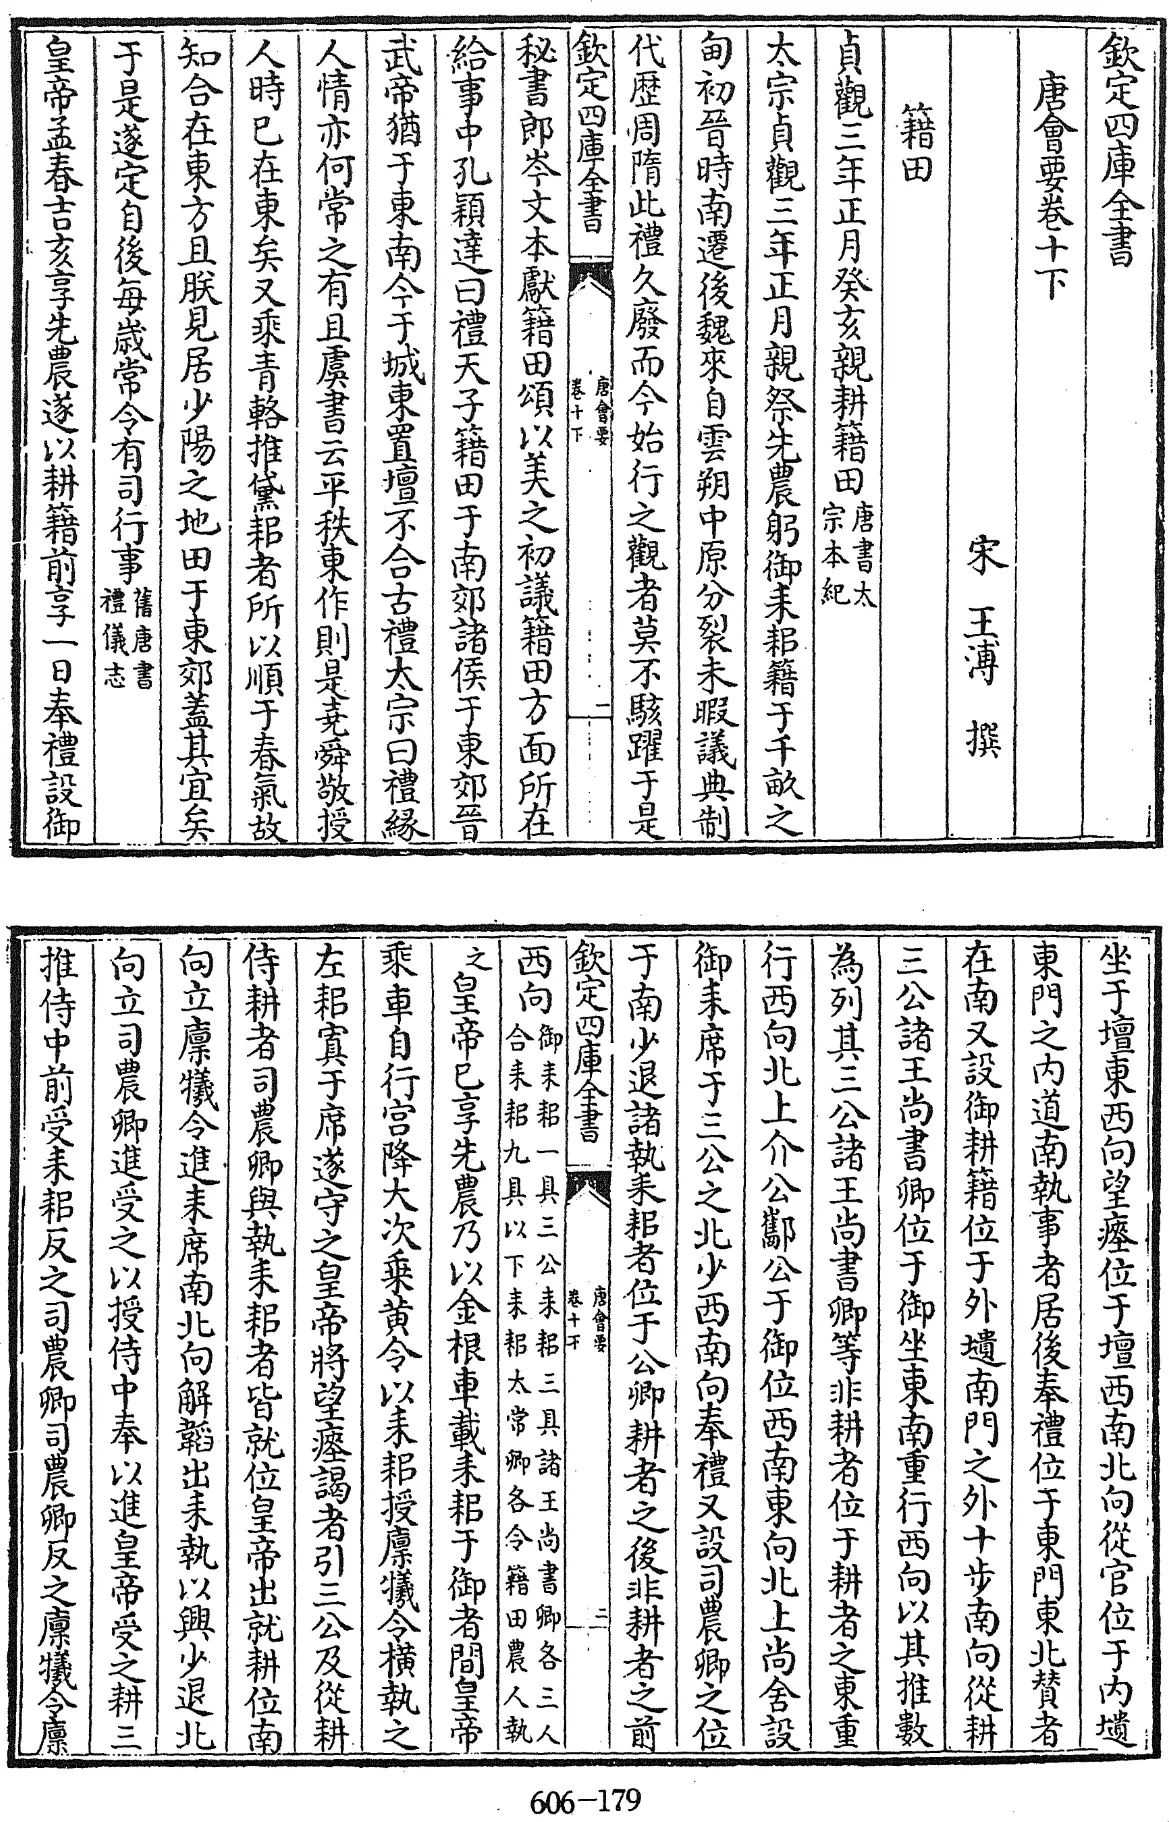 欽定四庫全書
唐會要卷十下
宋 王溥 撰
籍田
貞觀三年正月癸亥親耕籍田唐書太宗本紀
太宗貞觀三年正月親祭先農躬御耒耜籍于千畝之
甸初晉時南遷後魏來自雲朔中原分裂未暇議典制
代歴周隋此禮久廢而今始行之觀者莫不駭躍于是
欽定四庫全書
唐會要
卷十下
二
秘書郎岑文本獻籍田頌以美之初議籍田方面所在
給事中孔穎達曰禮天子籍田于南郊諸侯于東郊晉
武帝猶于東南今于城東置壇不合古禮太宗曰禮緣
人情亦何常之有且虞書云平秩東作則是堯舜敬授
人時已在東矣又乘青輅推黛耜者所以順于春氣故
知合在東方且朕見居少陽之地田于東郊蓋其宜矣
于是遂定自後每歳常令有司行事舊唐書禮儀志
皇帝孟春吉亥享先農遂以耕籍前享一日奉禮設御
坐于壇東西向望瘞位于壇西南北向從官位于内壝
東門之内道南執事者居後奉禮位于東門東北贊者
在南又設御耕籍位于外壝南門之外十步南向從耕
三公諸王尚書卿位于御坐東南重行西向以其推數
為列其三公諸王尚書卿等非耕者位于耕者之東重
行西向北上介公酅公于御位西南東向北上尚舍設
御耒席于三公之北少西南向奉禮又設司農卿之位
于南少退諸執耒耜者位于公卿耕者之後非耕者之前
欽定四庫全書
唐會要
卷十下
二
西向御耒耜一具三公耒耜三具諸王尚書卿各三人合耒耜九具以下耒耜太常卿各令籍田農人執
之皇帝已享先農乃以金根車載耒耜于御者間皇帝
乘車自行宫降大次乘黄令以耒耜授廪犧令橫執之
左耜寘于席遂守之皇帝將望瘞謁者引三公及從耕
侍耕者司農卿與執耒耜者皆就位皇帝出就耕位南
向立廪犧令進耒席南北向解韜出耒執以興少退北
向立司農卿進受之以授侍中奉以進皇帝受之耕三
推侍中前受耒耜反之司農卿司農卿反之廪犧令廪
606-179